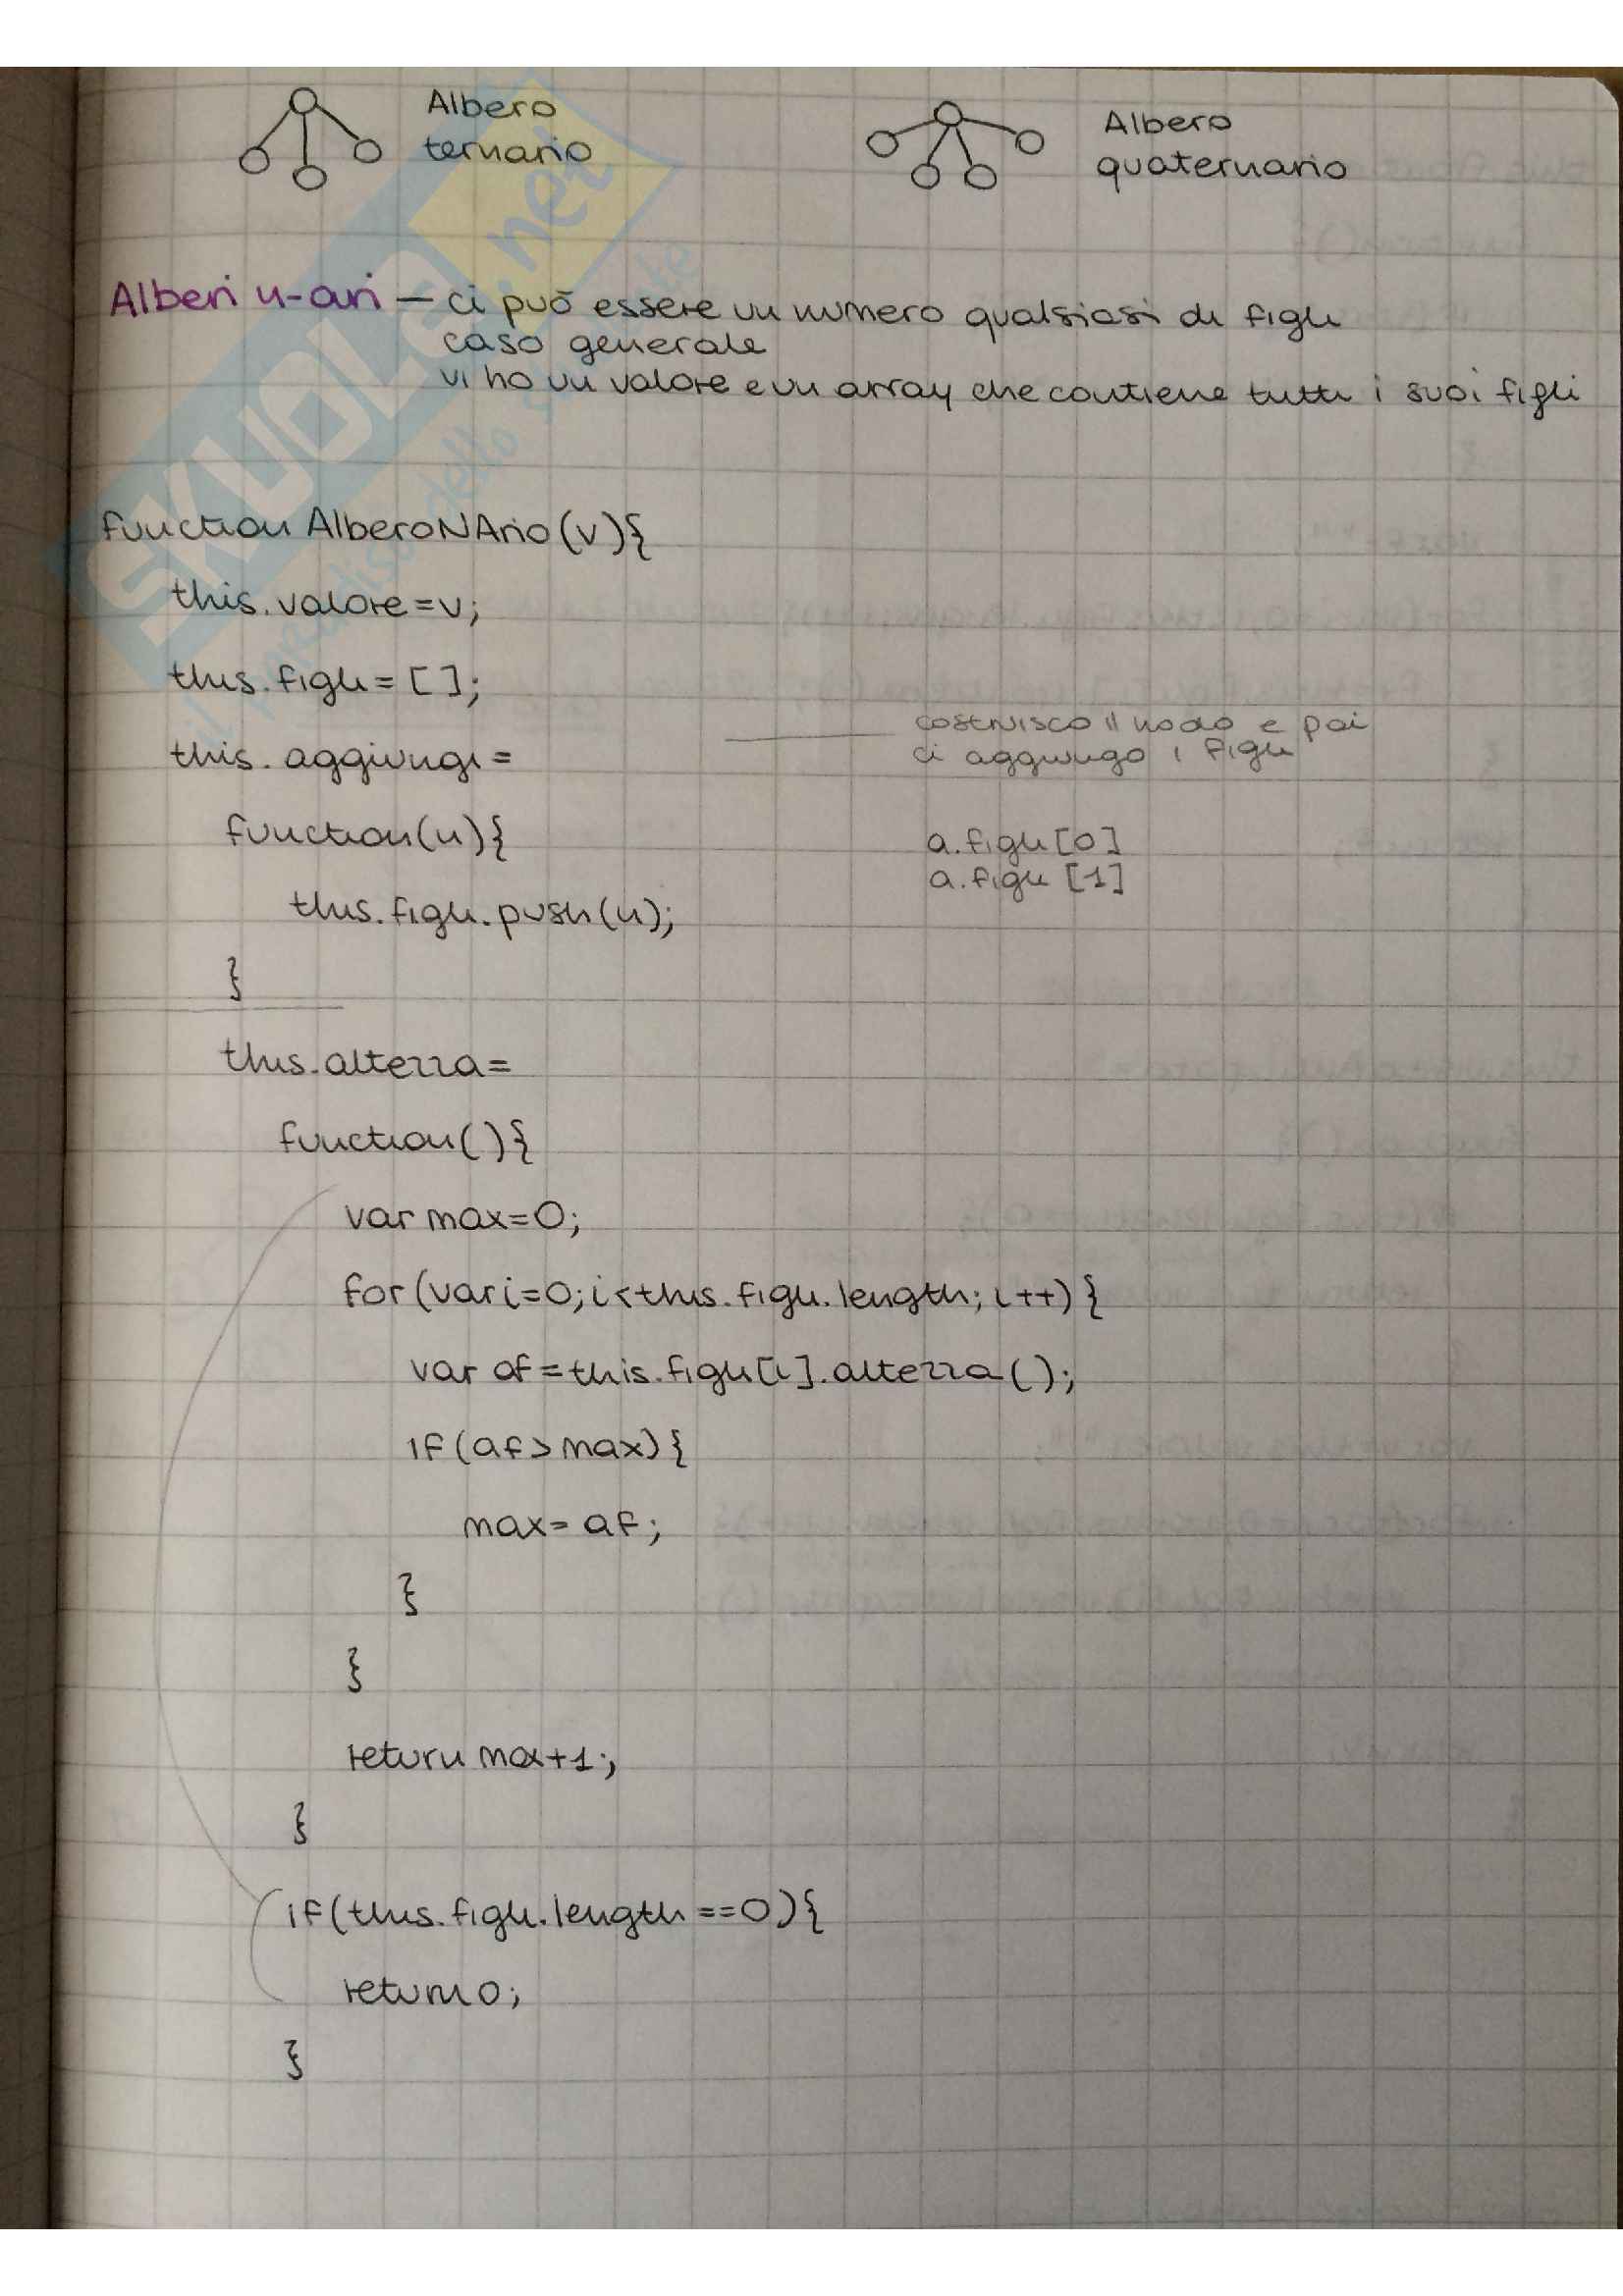 Albero
ternario
Albero
quaternario
Alberi n-ari — ci può essere un numero qualsiasi di figli
caso generale
vi ho un valore e un array che contiene tutti i suoi figli
function AlberoNArio(v){
this.valore=v;
this.figli=[ ];
this.aggiungi=
costruisco il nodo e poi
ci aggiungo i figli
function(n){
a.figli[0]
a.figli [1]
this.figli.push(n);
}
this.altezza=
function( ){
var max=0;
for(var i=0;i<this.figli.length; i++){
var af=this.figli[i].altezza( );
if(af>max){
max= af;
}
}
return max+1;
}
if(this.figli.length==0){
return 0;
}
SKUOLA.net